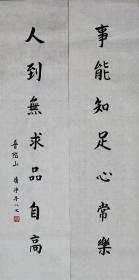 事能知足心常樂
人到無求品自高
普陀山